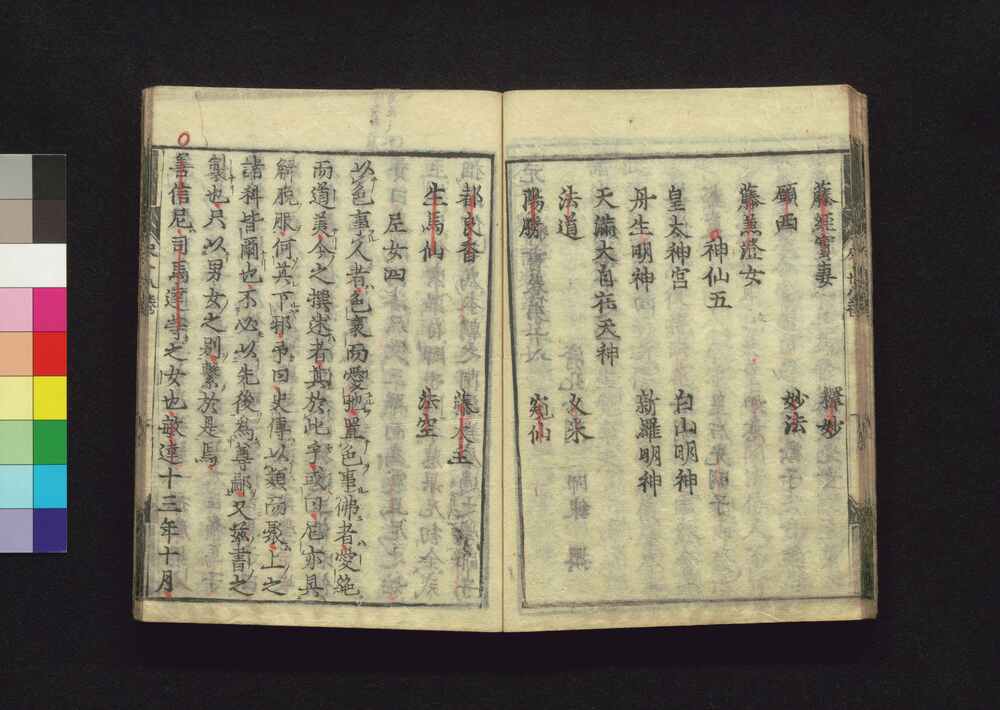 藤經實妻　釋妙
願西　妙法
藤兼澄女
神仙五
皇太神宮　白山明神
丹生明神　新羅明神
天滿大自在天神
法道　久米
陽勝　窕仙
都良香　藤太主
生馬仙　法空
尼女四
以色事人者色衰而愛弛置色事佛者愛絁
而道美今之撰述者其於此乎或曰尼亦具
解脫服何其下邪予曰史傳以類而聚上之
諸科皆爾也不必以先後為尊鄙又益書之
製也只以男女之別繫於是焉
善信尼司馬達等之女也敏達十三年十月